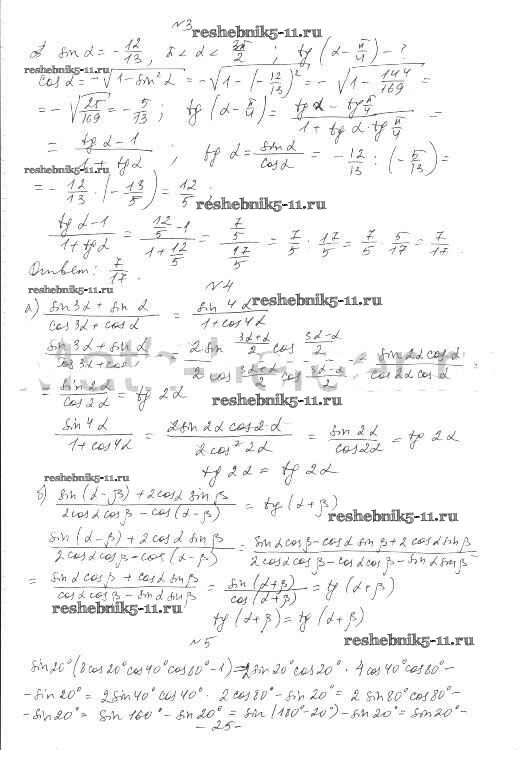 №3
reshebnik5-11.ru
sin α = -12/13, π < α < 3π/2 ; tg(α - π/4) - ?
reshebnik5-11.ru
cos α = -√(1 - sin²α) = -√(1 - (-12/13)²) = -√(1 - 144/169) =
= -√(25/169) = -5/13 ; tg(α - π/4) = (tg α - tg π/4)/(1 + tg α tg π/4) =
= (tg α - 1)/(1 + tg α) ; tg α = sin α/cos α = -12/13 : (-5/13) =
reshebnik5-11.ru
= -12/13 · (-13/5) = 12/5 ;
reshebnik5-11.ru
(tg α - 1)/(1 + tg α) = (12/5 - 1)/(1 + 12/5) = (7/5)/(17/5) = 7/5 : 17/5 = 7/5 · 5/17 = 7/17.
Ответ: 7/17.
reshebnik5-11.ru
№4
а) (sin 3α + sin α)/(cos 3α + cos α) = sin 4α/(1 + cos 4α)
reshebnik5-11.ru
(sin 3α + sin α)/(cos 3α + cos α) = (2 sin (3α+α)/2 cos (3α-α)/2)/(2 cos (3α+α)/2 cos (3α-α)/2) = (sin 2α cos α)/(cos 2α cos α) =
= sin 2α/cos 2α = tg 2α
reshebnik5-11.ru
sin 4α/(1 + cos 4α) = (2 sin 2α cos 2α)/(2 cos² 2α) = sin 2α/cos 2α = tg 2α
tg 2α = tg 2α
reshebnik5-11.ru
б) (sin(α - β) + 2cos α sin β)/(2cos α cos β - cos(α - β)) = tg(α + β)
reshebnik5-11.ru
(sin(α - β) + 2cos α sin β)/(2cos α cos β - cos(α - β)) = (sin α cos β - cos α sin β + 2cos α sin β)/(2cos α cos β - cos α cos β - sin α sin β) =
= (sin α cos β + cos α sin β)/(cos α cos β - sin α sin β) = sin(α + β)/cos(α + β) = tg(α + β)
reshebnik5-11.ru
tg(α + β) = tg(α + β)
№5
reshebnik5-11.ru
sin 20°(8cos 20° cos 40° cos 80° - 1) = 2sin 20° cos 20° · 4cos 40° cos 80° -
- sin 20° = 2sin 40° cos 40° · 2cos 80° - sin 20° = 2 sin 80° cos 80° -
- sin 20° = sin 160° - sin 20° = sin(180° - 20°) - sin 20° = sin 20° -
- 25 -